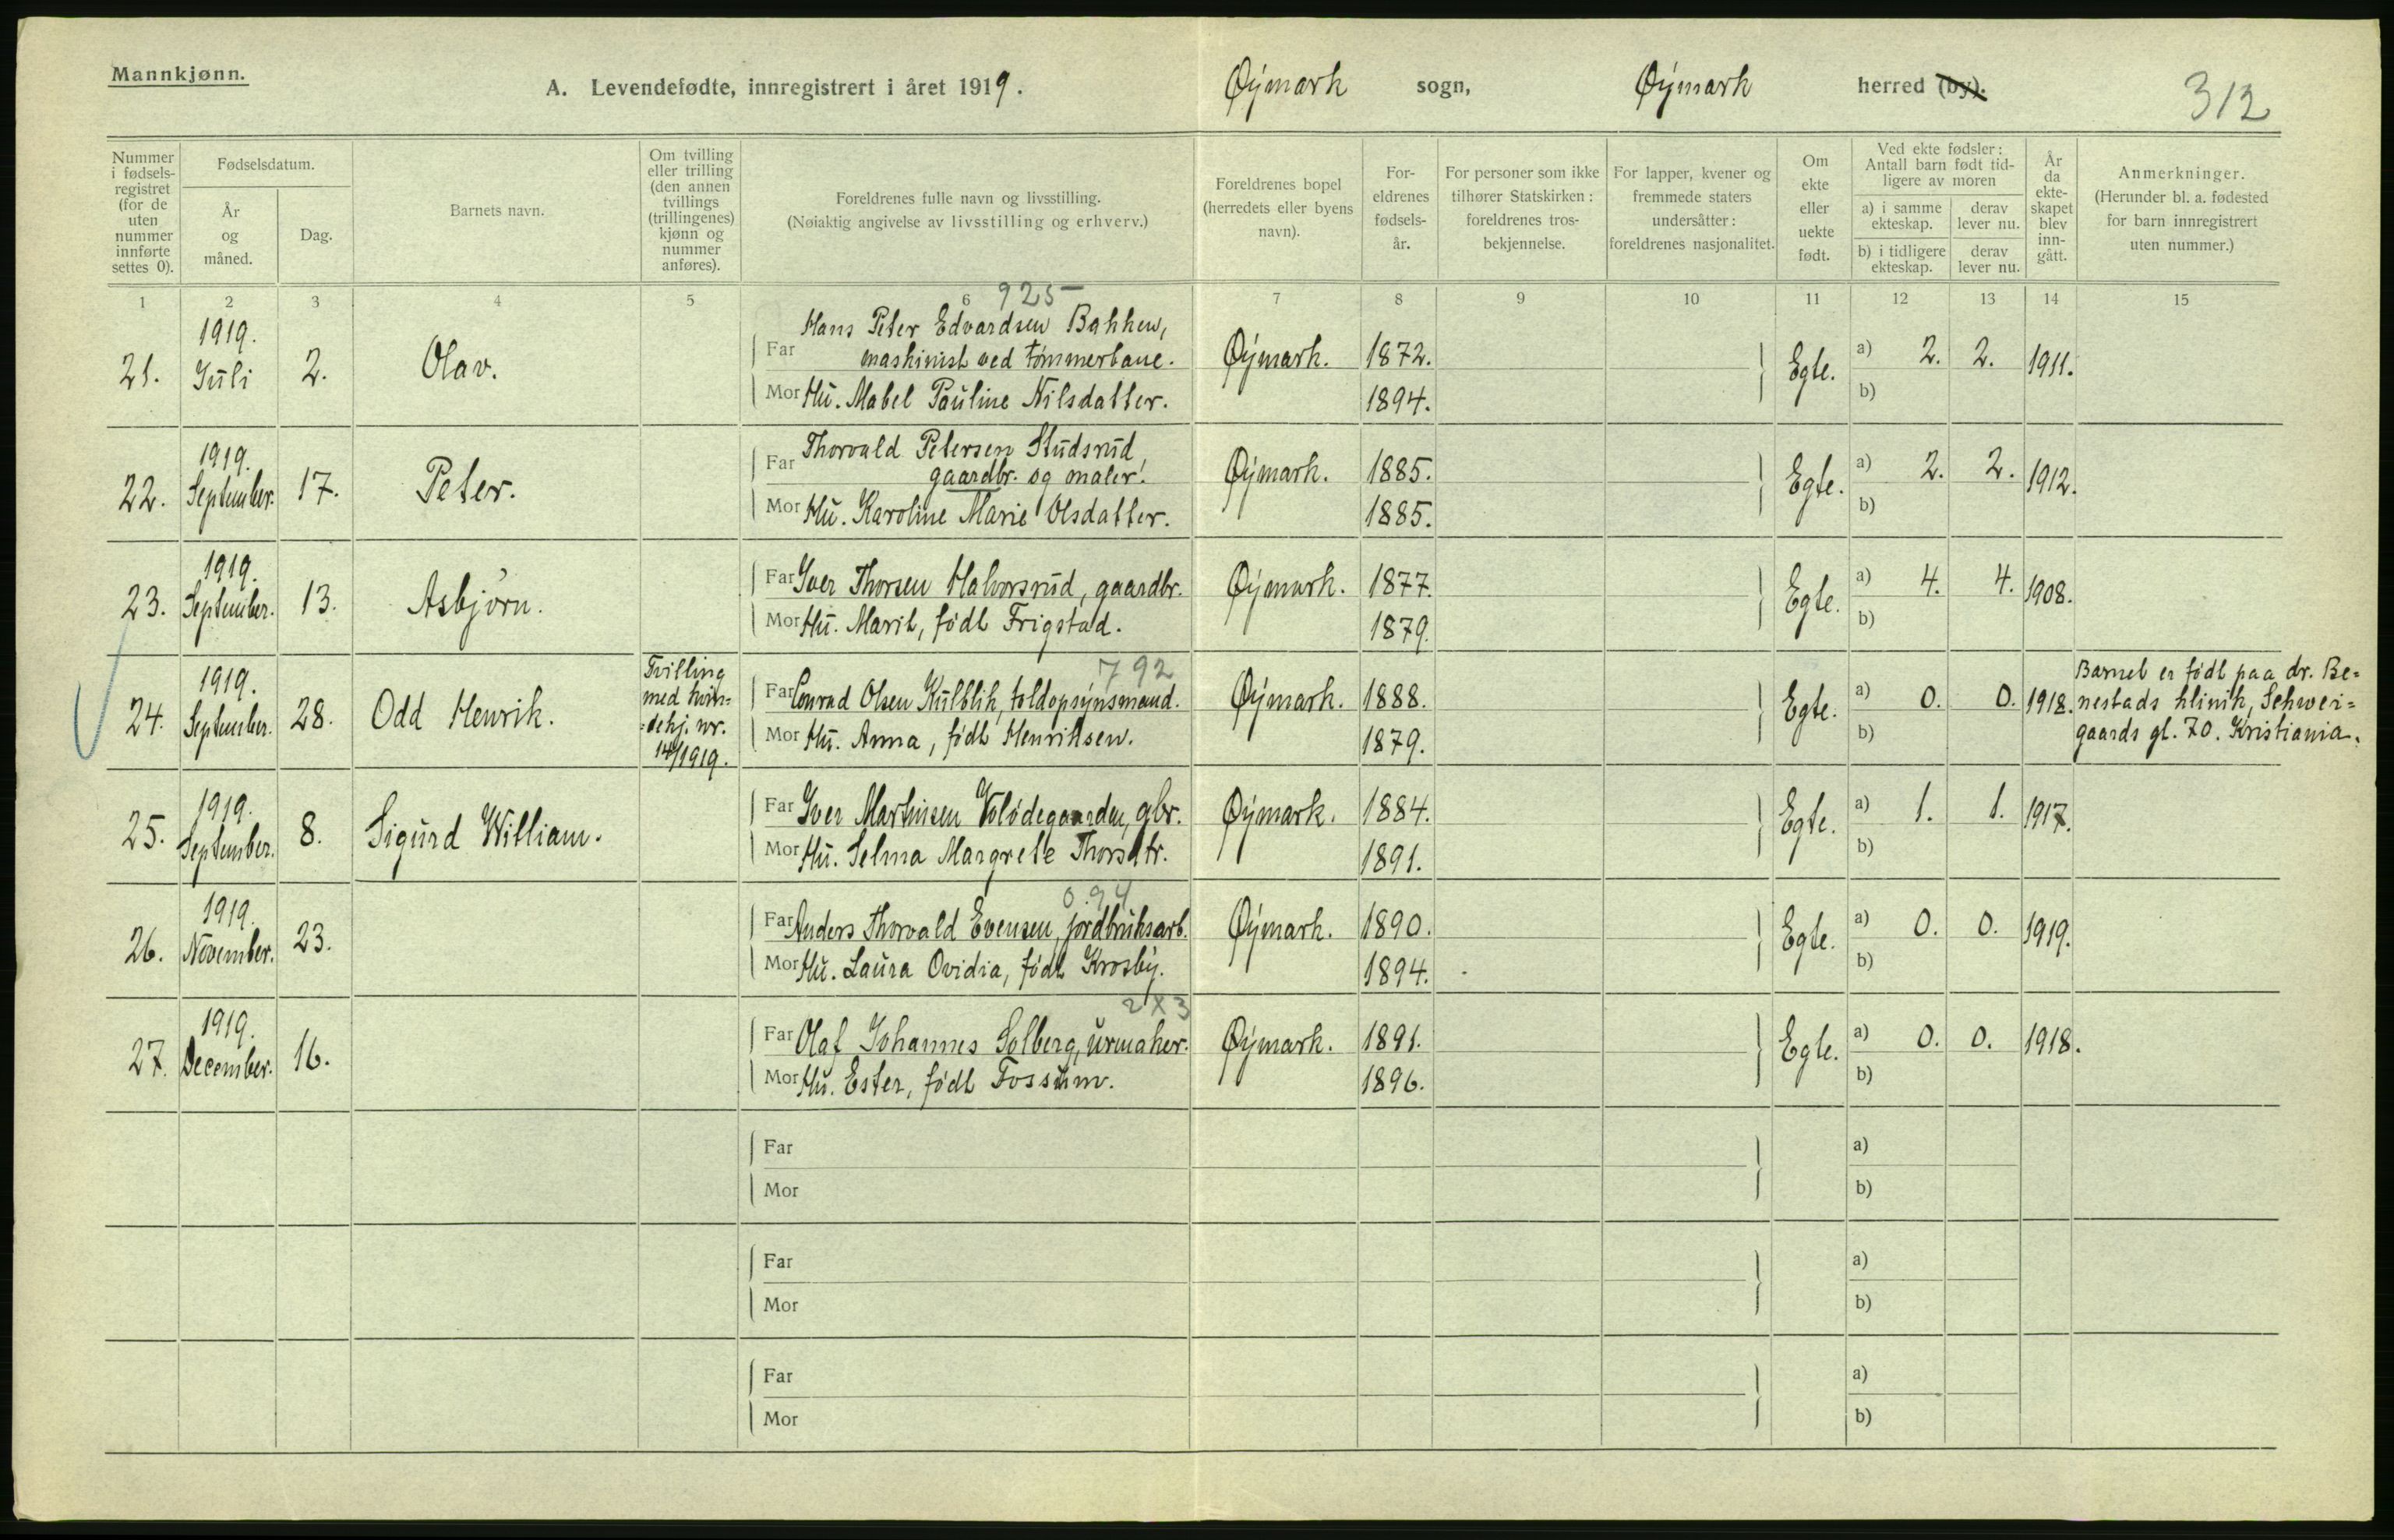 Mannkjønn.
A. Levendefødte, innregistrert i året 1919.
Øymark sogn, Øymark herred (by).
312
Nummer i fødsels-registret (for de uten nummer innførte settes 0).
Fødselsdatum.
År og måned.
Dag.
Barnets navn.
Om tvilling eller trilling (den annen tvillings (trillingenes) kjønn og nummer anføres).
Foreldrenes fulle navn og livsstilling.
(Nøiaktig angivelse av livsstilling og erhverv.)
Foreldrenes bopel (herredets eller byens navn).
For-eldrenes fødsels-år.
For personer som ikke tilhører Statskirken: foreldrenes tros-bekjennelse.
For lapper, kvener og fremmede staters undersåtter: foreldrenes nasjonalitet.
Om ekte eller uekte født.
Ved ekte fødsler: Antall barn født tid-ligere av moren
a) i samme ekteskap.
derav lever nu.
b) i tidligere ekteskap.
derav lever nu.
År da ekte-skapet blev inn-gått.
Anmerkninger.
(Herunder bl. a. fødested for barn innregistrert uten nummer.)
1 2 3 4 5 6 7 8 9 10 11 12 13 14 15
925
21. 1919. Juli 2. Olav.
Far Hans Peter Edvardsen Bakken,
maskinist ved tømmerbane. Øymark. 1872.
Mor Hu. Mabel Pauline Nilsdatter. 1894.
Egte. a) 2. 2. 1911.
b)
22. 1919. September. 17. Peter.
Far Thorvald Petersen Studsrud,
gaardbr. og maler. Øymark. 1885.
Mor Hu. Karoline Marie Olsdatter. 1885.
Egte. a) 2. 2. 1912.
b)
23. 1919. September. 13. Asbjørn.
Far Iver Thorsen Halvorsrud, gaardbr. Øymark. 1877.
Mor Hu. Marit, født Frigstad. 1879.
Egte. a) 4. 4. 1908.
b)
792
24. 1919. September. 28. Odd Henrik.
Tvilling
med kvin=
=dekj. nr.
14/1919.
Far Conrad Olsen Kulblik, toldopsynsmand. Øymark. 1888.
Mor Hu. Anna, født Henriksen. 1879.
Egte. a) 0. 0. 1918.
b)
Barnet er født paa dr. Be=
nestads klinik, Schwei=
gaards gt. 70. Kristiania.
25. 1919. September. 8. Sigurd William.
Far Iver Martinsen Vølødegaarden, gbr. Øymark. 1884.
Mor Hu. Selma Margrete Thorsdtr. 1891.
Egte. a) 1. 1. 1917.
b)
0.94
26. 1919. November. 23.
Far Anders Thorvald Evensen, jordbruksarb. Øymark. 1890.
Mor Hu. Laura Ovidia, født Krosby. 1894.
Egte. a) 0. 0. 1919.
b)
2X3
27. 1919. December. 16.
Far Olaf Johannes Solberg, urmaker. Øymark. 1891.
Mor Hu. Ester, født Fossum. 1896.
Egte. a) 0. 0. 1918.
b)
Far a)
Mor b)
Far a)
Mor b)
Far a)
Mor b)